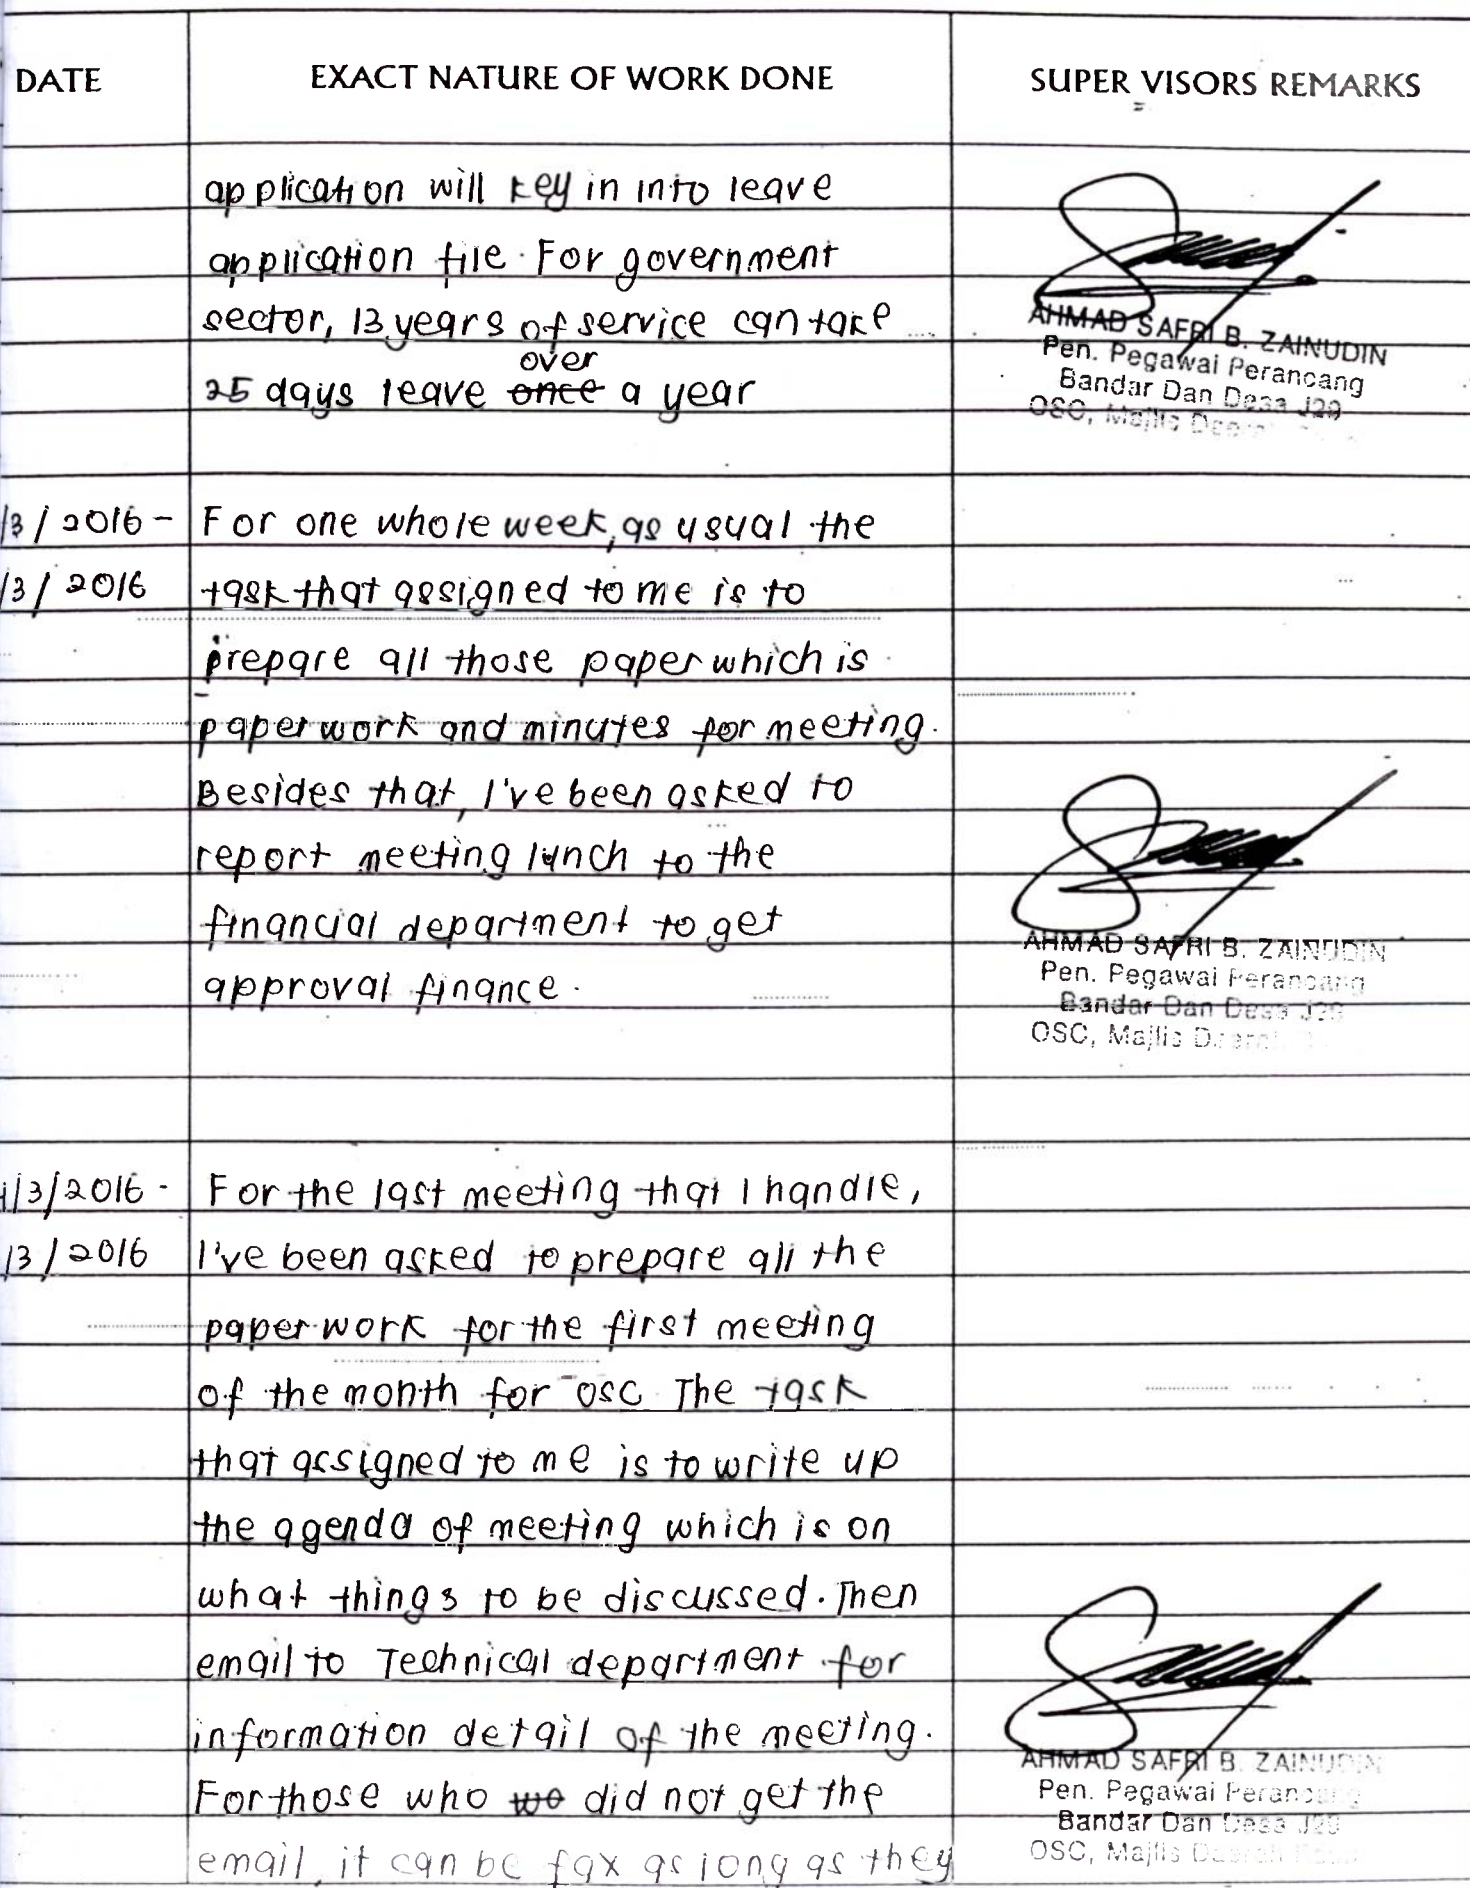 DATE EXACT NATURE OF WORK DONE SUPER VISORS REMARKS
application will key in into leave
application file. For government
sector, 13 years of service can take
over
25 days leave once a year
AHMAD SAFRI B. ZAINUDIN
Pen. Pegawai Perancang
Bandar Dan Desa J29
OSC, Majlis
/3/2016 - For one whole week, as usual the
/3/2016 task that assigned to me is to
prepare all those paper which is
paperwork and minutes for meeting.
Besides that, I've been asked to
report meeting lunch to the
financial department to get
approval finance.
AHMAD SAFRI B. ZAINUDIN
Pen. Pegawai Perancang
Bandar Dan Desa J29
OSC, Majlis
/3/2016 - For the last meeting that I handle,
/3/2016 I've been asked to prepare all the
paperwork for the first meeting
of the month for OSC The task
that assigned to me is to write up
the agenda of meeting which is on
what things to be discussed. Then
email to Technical department for
information detail of the meeting.
For those who we did not get the
email, it can be fax as long as they
AHMAD SAFRI B. ZAINUDIN
Pen. Pegawai Perancang
Bandar Dan Desa J29
OSC, Majlis Daerah